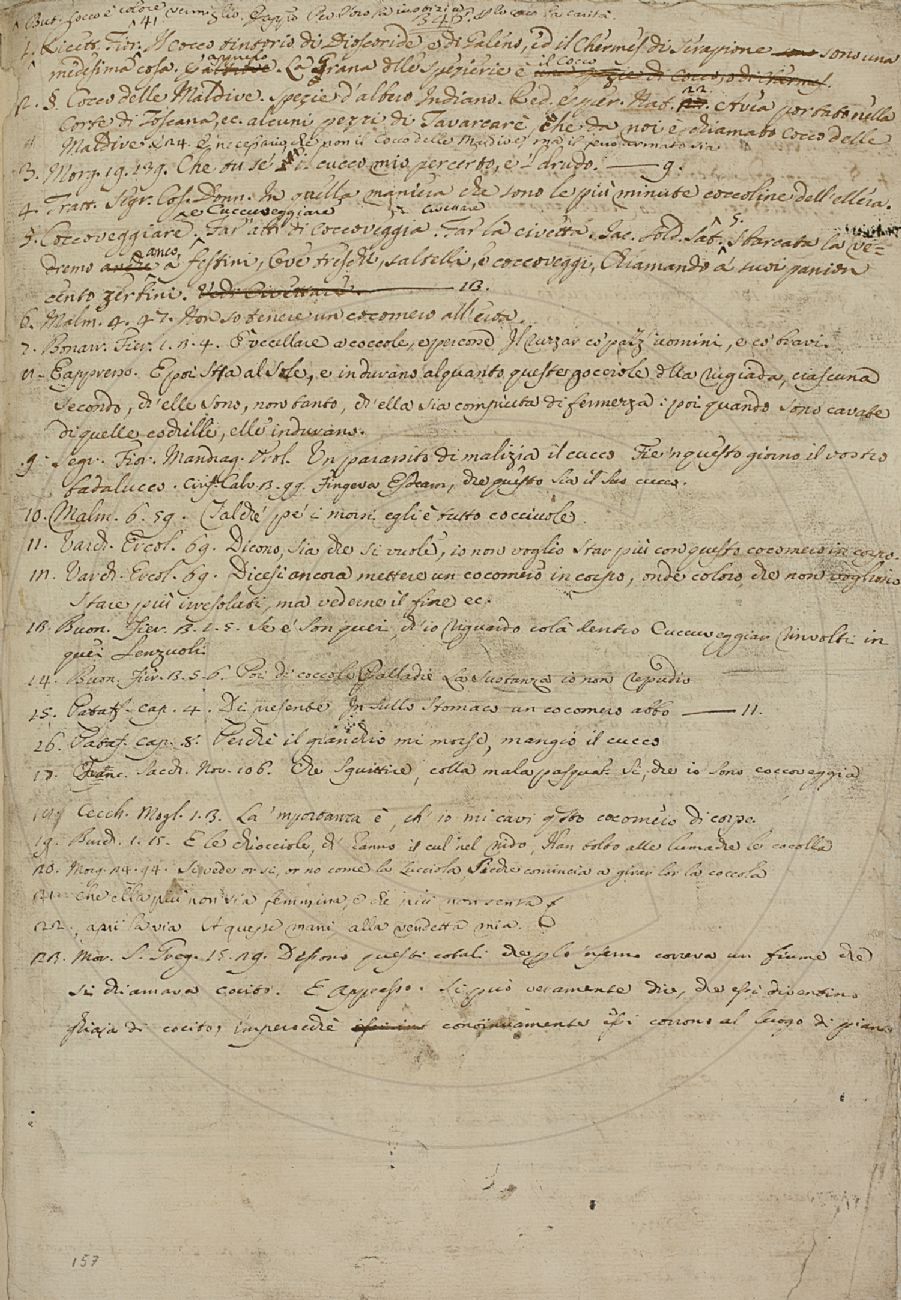 ^ But. Cocco è colore vermiglio. Eappr. Per
345.
1. Ricett. Fior. Il Cocco tintorio di Dioscoride, e di Galeno, ed il Chermes di Serapione sono una
medesima cosa, La grana delle spezierie è il cocco
2. §. Cocco delle Maldive. Spezie d'albero Indiano. Red. esper. nat. 22. Avea portato nella
Corte di Toscana, ec. alcuni pezzi di Tavarcarè, che da noi è chiamato cocco delle
Maldive. E 24. È necessario, che non il Cocco delle Maldive, ma il
3. Morg. 19. 139. Che tu se' il cucco mio per certo, e 'l drudo. 9.
4. Tratt. Segr. Cos. Donn. In quella maniera che sono le più minute coccoline dell'ellera.
e Cuccuveggiare
5. Coccoveggiare. Far atti di Coccoveggia. Far la civetta. Jac. Sold. Sat. 5. Sbarcata la ve-
dremo anco a' festini, Ov'è tresche, saltelli, e coccoveggi, Chiamando a' suoi panion
cento zerbini. 13.
6. Malm. 4. 47. Non so tenere un cocomero all'erta.
7. Bonarr. Fier. 1. 3. 4. È uccellare a coccole, e percone Il ruzzar co' pazzi uomini, e co' bravi.
8. Eappresso. E poi sta al Sole, e indurano alquanto queste gocciole della rugiada, ciascuna
secondo, ch'elle sono, non tanto, ch'ella sia compiuta di fermezza: poi quando sono cavate
di quelle cochille, elle indurano.
9. Segr. Fior. Mandrag. Prol. Un parassito di malizia il cucco Fie 'n questo giorno il vostro
badalucco. Ciriff. Calv. 3. 99. Fingeva che questo sia il suo cucco.
10. Malm. 6. 59. Talchè pe' i morsi egli è tutto cocciuole.
11. Varch. Ercol. 69. Dicono, sia che si vuole, io non voglio star più con questo cocomero in corpo.
12. Varch. Ercol. 69. Dicesi ancora mettere un cocomero in corpo, onde coloro che non vogliono
stare più irresoluti, ma vederne il fine ec.
13. Buon. Fier. 3. 1. 5. Se e' son quei, ch'io riguardo colà dentro Cuccuveggiar rinvolti in
quei lenzuoli.
14. Buon. Fier. 3. 5. 6. Poi di coccole Palladie La sustanza io non repudio
15. Pataff. cap. 4. Di presente In sullo stomaco un cocomero abbo 11.
16. Pataf. cap. 8. Perchè il mi morse, mangio il cucco
17. Franc. Sacch. Nov. 106. Che squittire, colla mala pasqua. Sì, che io sono coccoveggia
18. Cecch. Mogl. 1. 3. La 'mportanza è, ch'io mi cavi questo cocomero di corpo.
19. Burch. 1. 15. E le chiocciole, ch'hanno il cul nel nido, Han tolto alle lumache le cocolle
20. Morg. 24. 94. Si vede or sì, or no come la lucciola, Perchè comincia a girar lor la coccola
21. che ella più non sia femmina, e che più non senta
22. apri la via A queste mani alla vendetta mia.
23. Mor. S. Greg. 15. 29. Dissono questi cotali che per lo 'nferno correva un fiume che
si chiamava cocito. E appresso. Si può veramente dire, che essi diventino
ghiaja di cocito; imperocchè continuamente essi corrono al luogo di pian
157